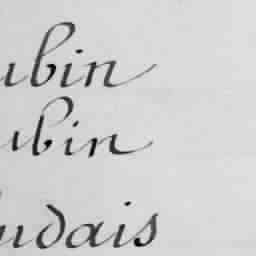 ubin
ubin
udais